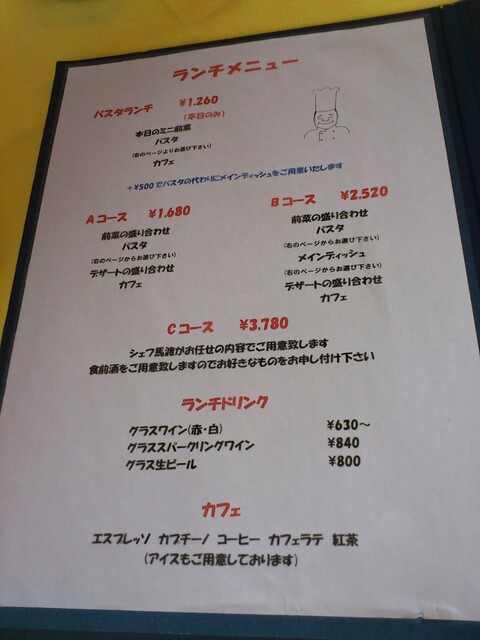 ランチメニュー
パスタランチ ¥1,260
(平日のみ)
本日のミニ前菜
パスタ
(右のページよりお選び下さい)
カフェ
+¥500でパスタの代わりにメインディッシュをご用意いたします
Aコース ¥1,680
前菜の盛り合わせ
パスタ
(右のページからお選び下さい)
デザートの盛り合わせ
カフェ
Bコース ¥2,520
前菜の盛り合わせ
パスタ
(右のページからお選び下さい)
メインディッシュ
(右のページからお選び下さい)
デザートの盛り合わせ
カフェ
Cコース ¥3,780
シェフ馬渡がお任せの内容でご用意致します
食前酒をご用意致しますのでお好きなものをお申し付け下さい
ランチドリンク
グラスワイン(赤・白) ¥630～
グラススパークリングワイン ¥840
グラス生ビール ¥800
カフェ
エスプレッソ カプチーノ コーヒー カフェラテ 紅茶
(アイスもご用意しております)